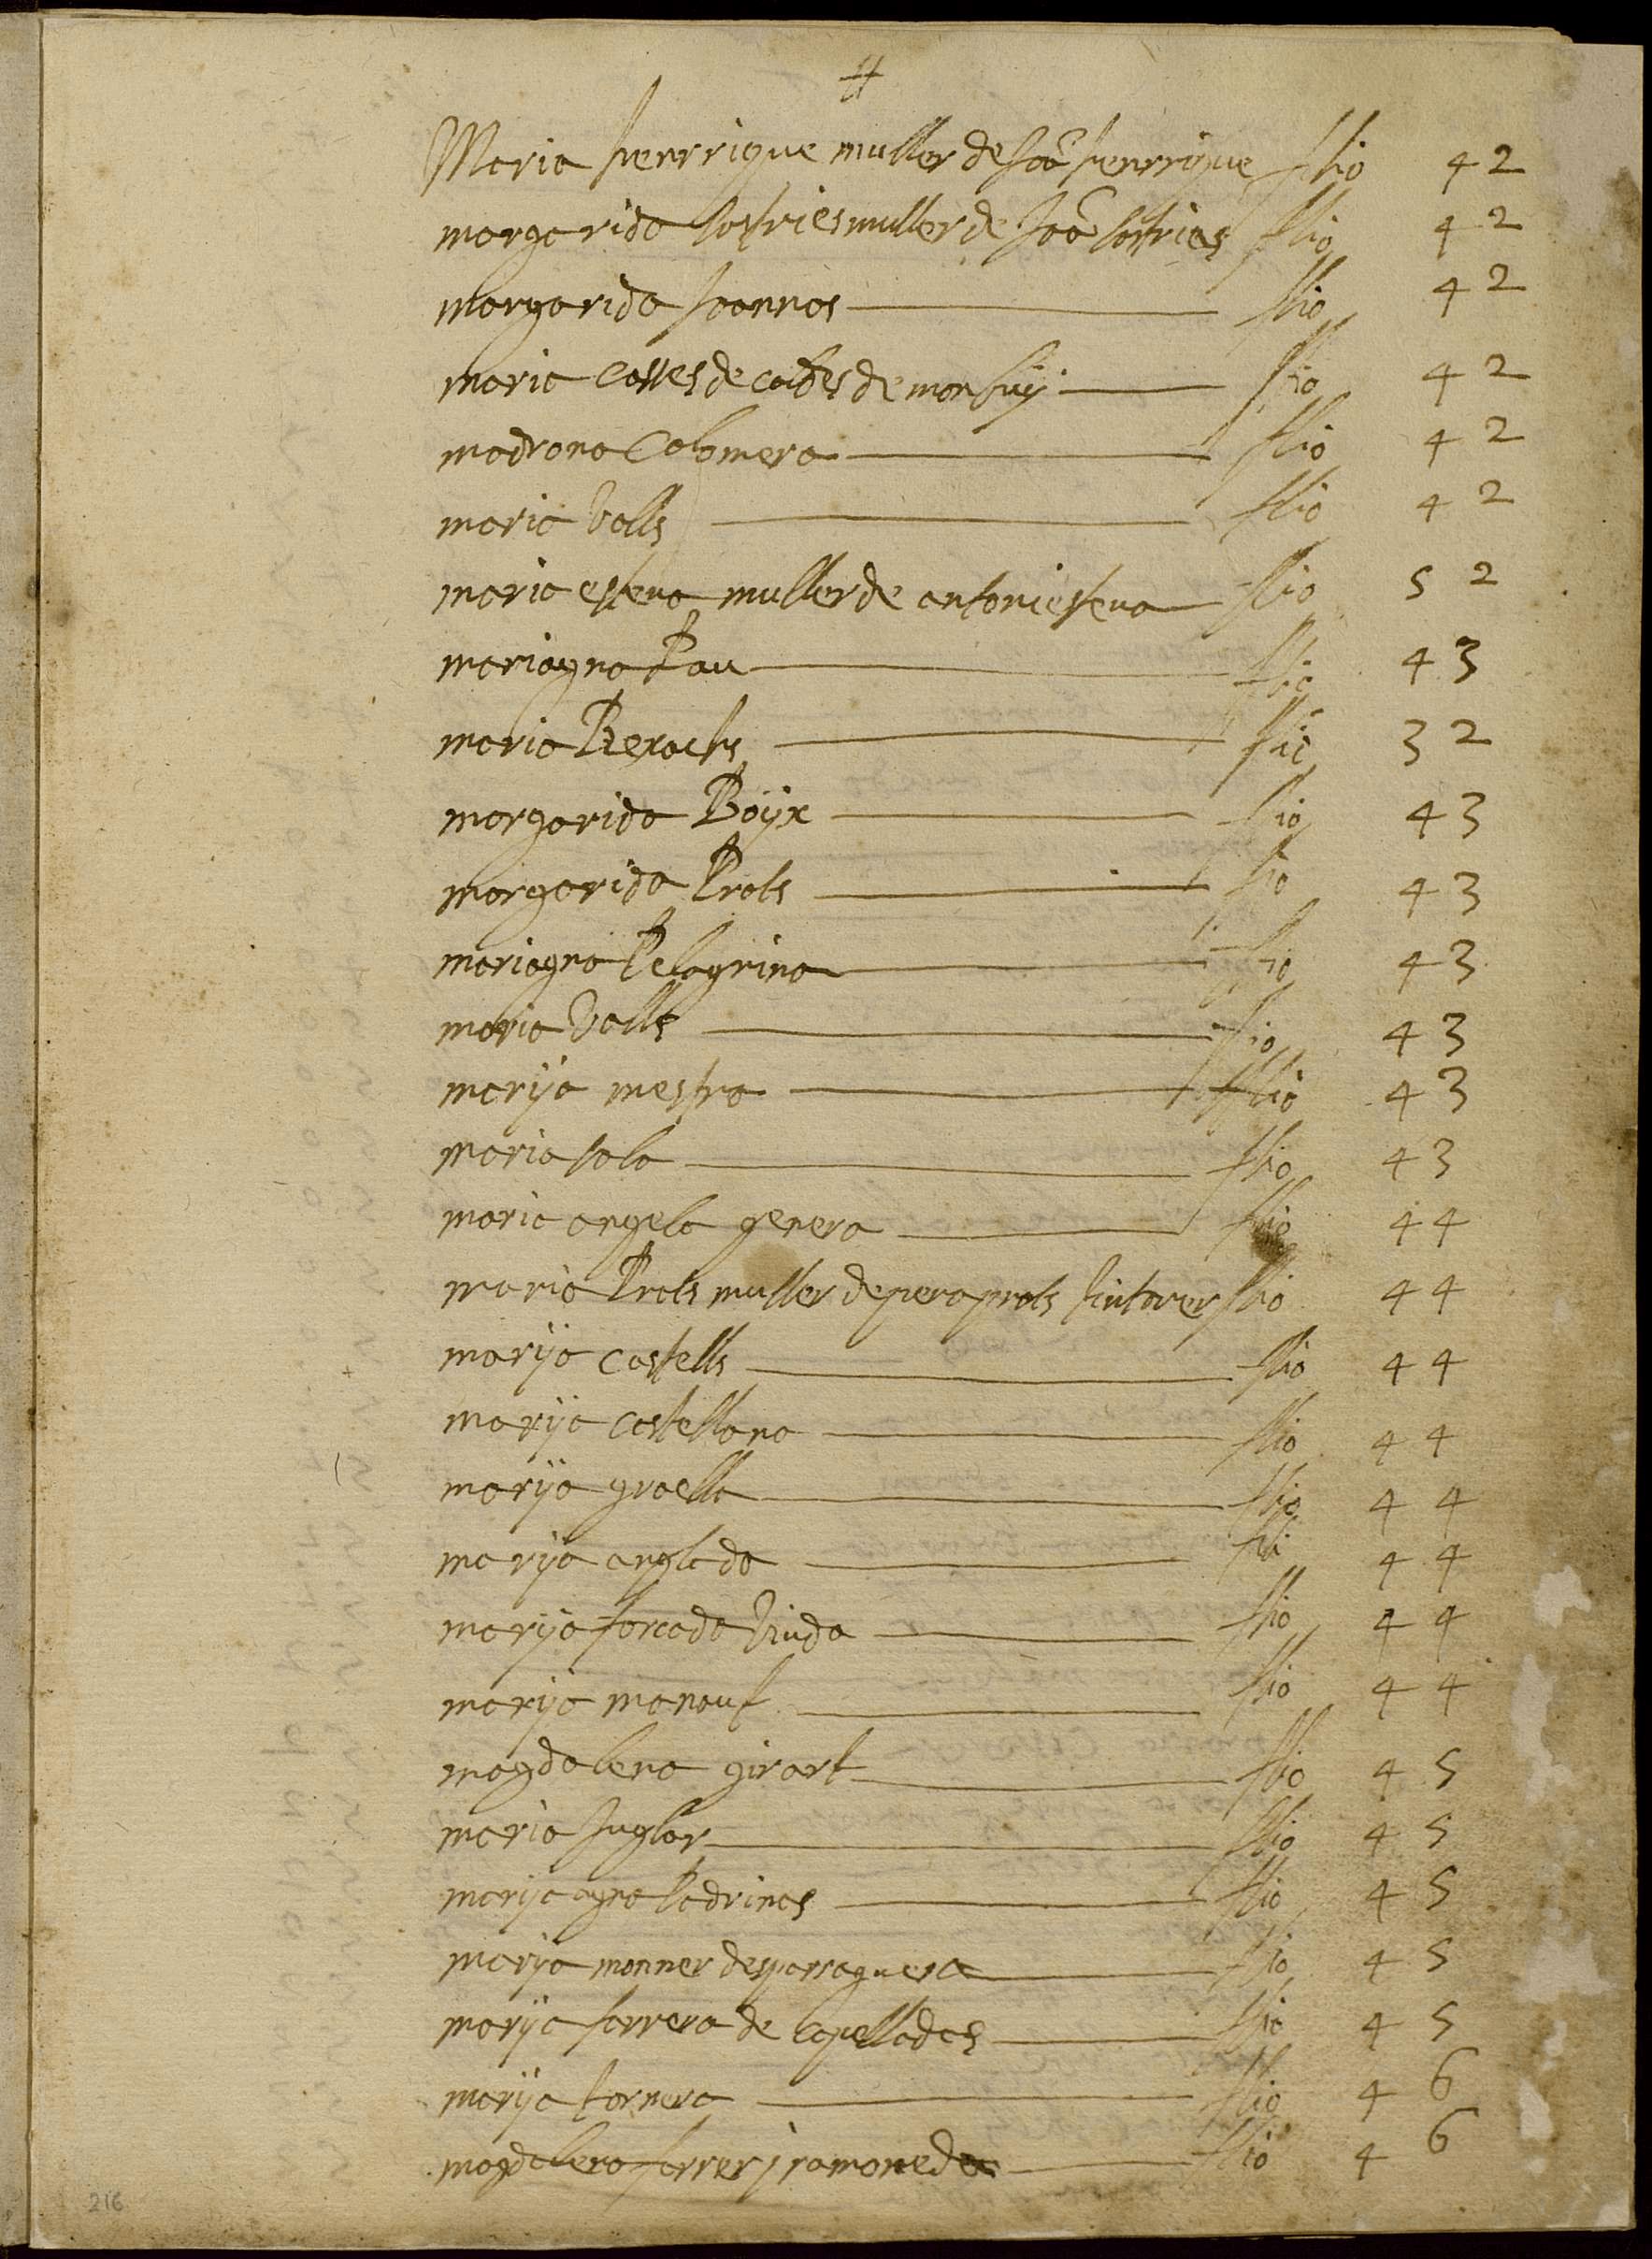 #
Maria henrrique muller de Joã henrrique flio 42
margarida sastries muller de Joã sastrias flio 42
margarida Joannas flio 42
maria casses de caldes de monbuÿ flio 42
madrona Colomera flio 42
maria Valls flio 42
maria esteva muller de antoni esteva flio 52
mariagna Pau flio 43
maria Rexachs flio 32
margarida Boÿx flio 43
margarida Prats flio 43
mariagna Pelagrina flio 43
maria Valls flio 43
marÿa mestra flio 43
maria sala flio 43
maria angela genera flio 44
maria Prats muller de pera prats tintorer flio 44
marÿa castells flio 44
marÿa castellana flio 44
marÿa graella flio 44
marÿa anglada fli 44
marÿa forcada Viuda flio 44
marÿa manaut flio 44
magdalena girart flio 45
maria Juglar flio 45
marÿa agna ladrinas flio 45
marÿa monner desparraguera flio 45
marÿa farrera de Capelladas flio 45
marÿa tornera flio 46
magdalena farrer j ramoneda flio 46
216